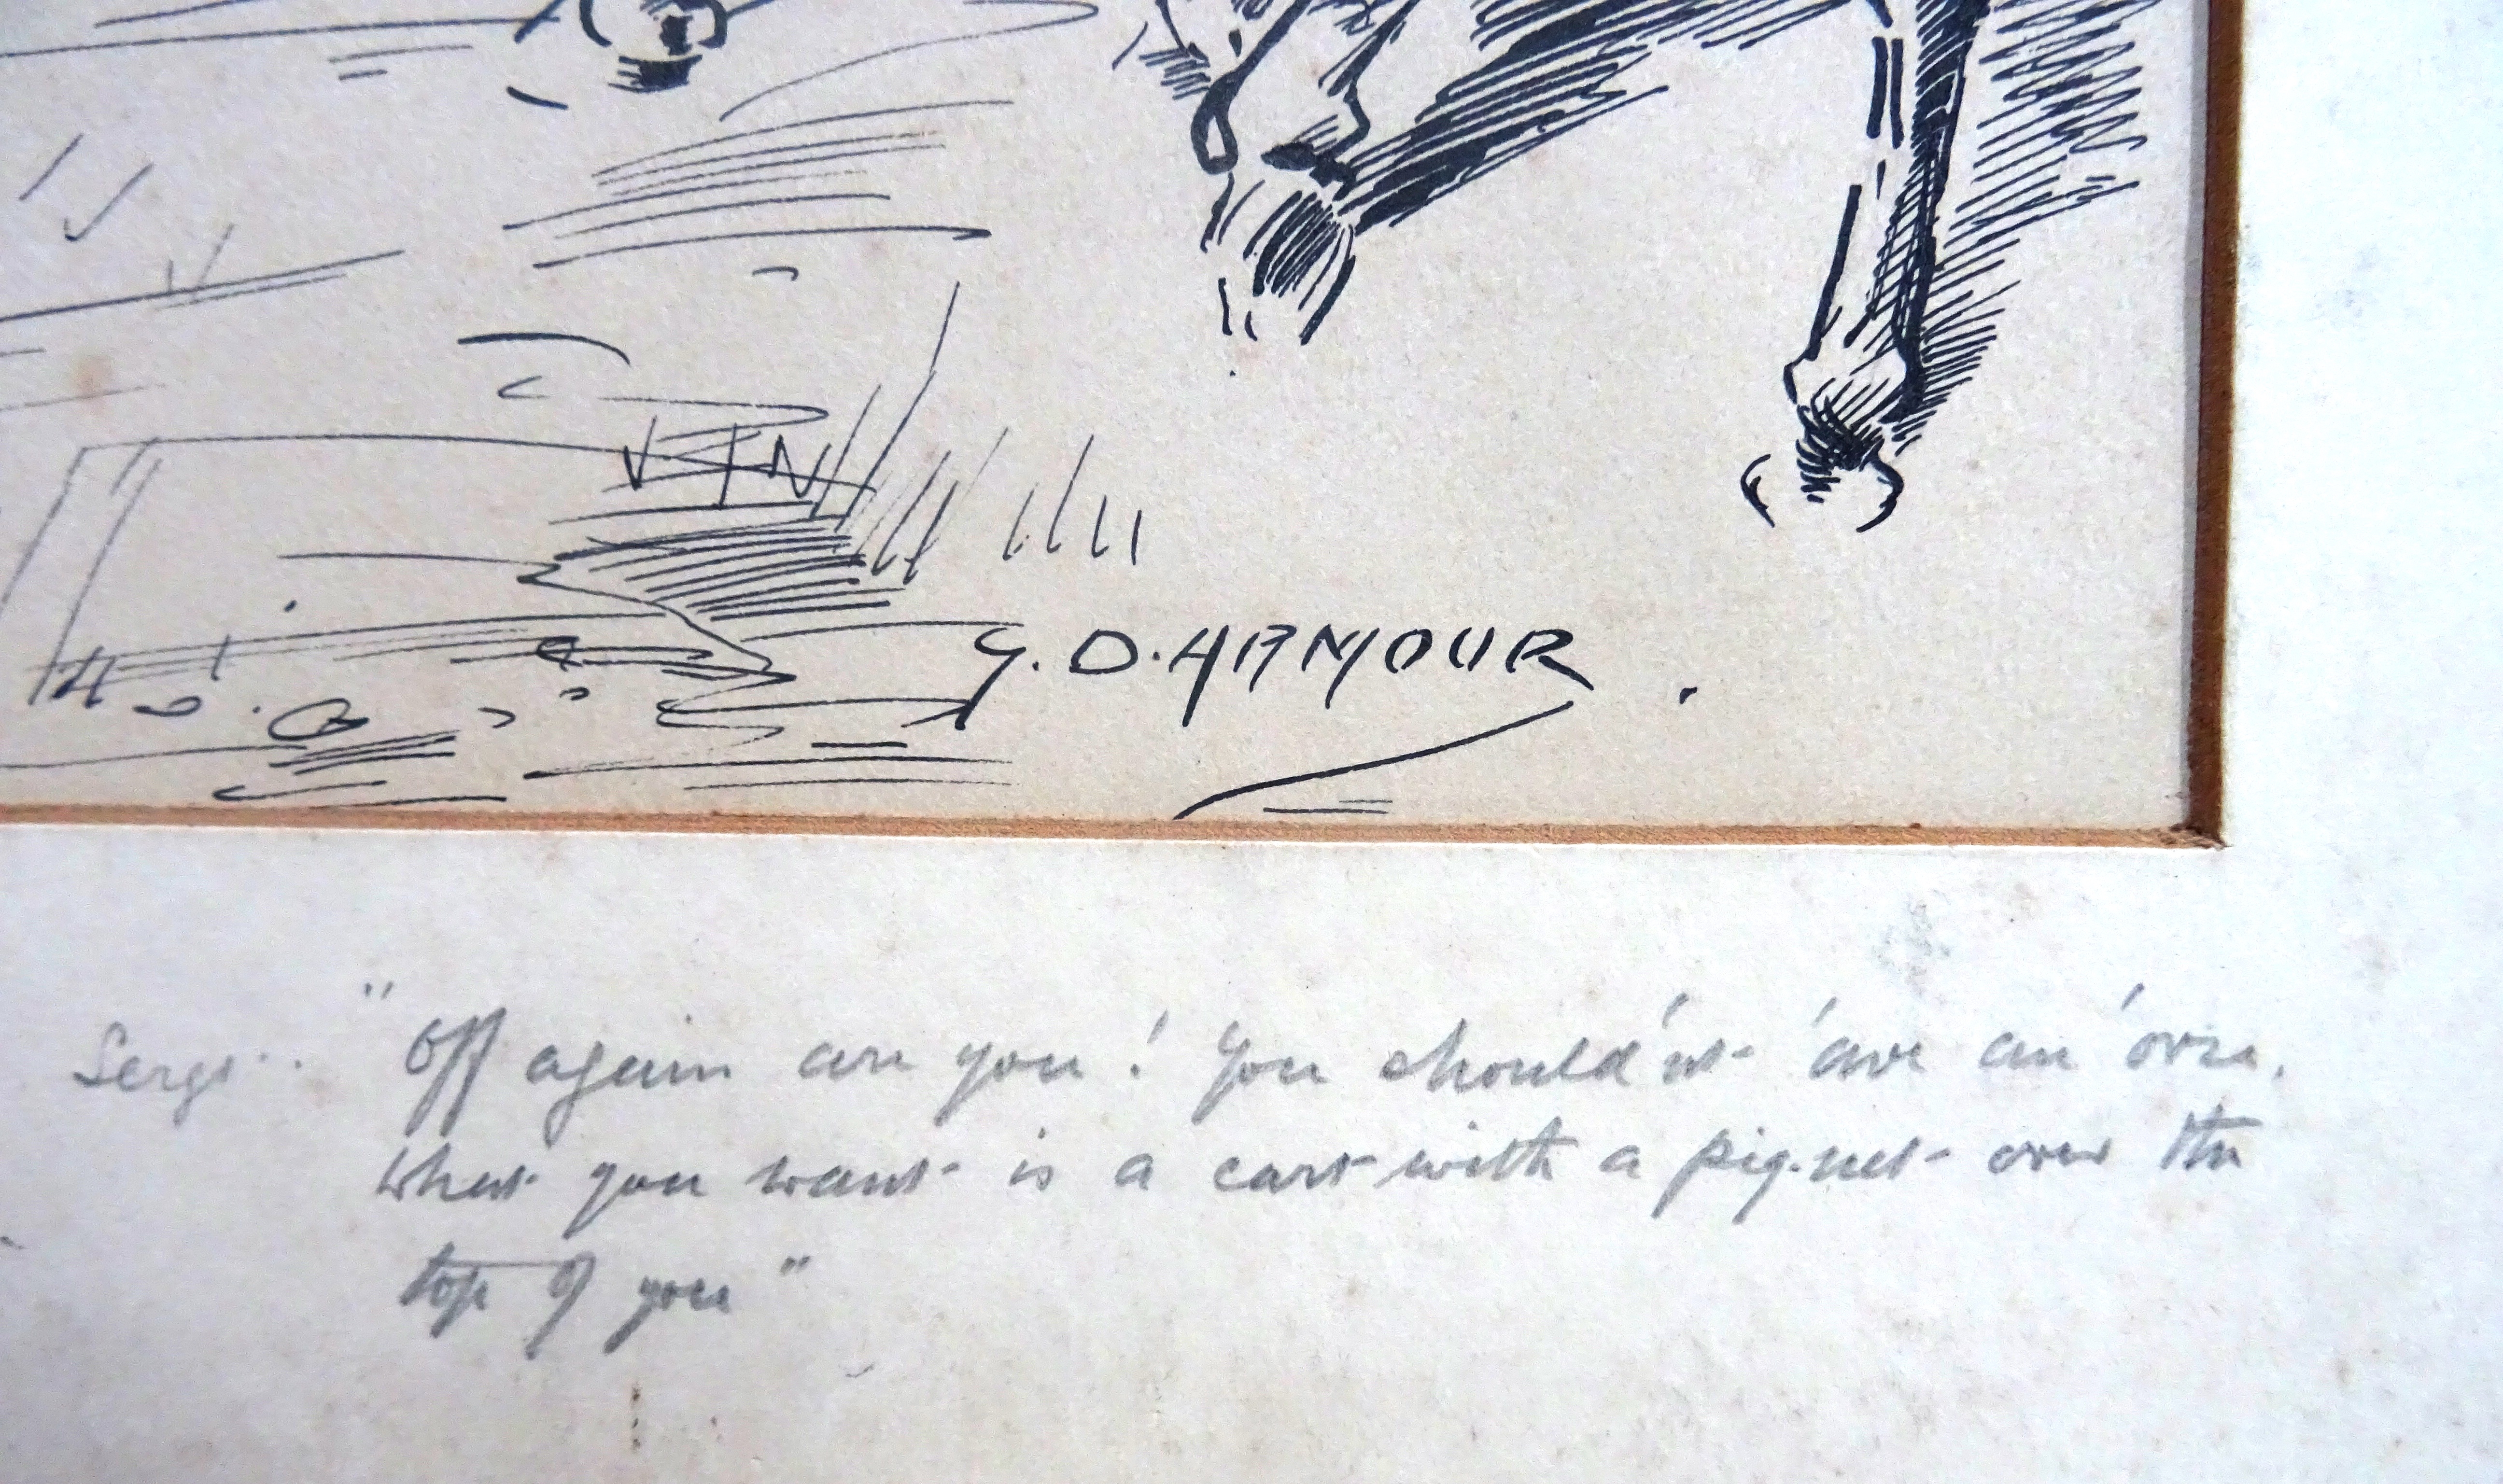 G. D. ARMOUR
Sergt. "Off again are you! You should'nt 'ave an 'orse.
What you want is a cart with a pig-net over the
top of you"